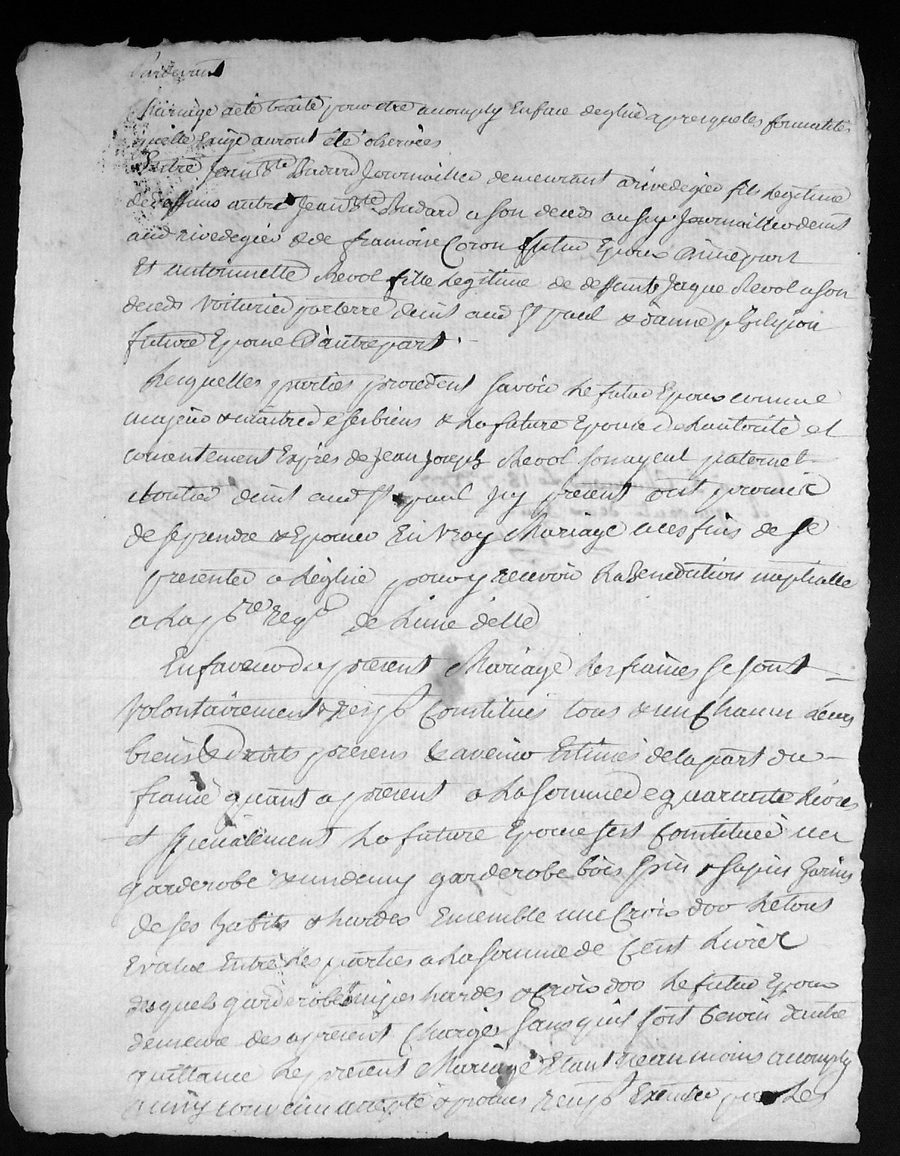 Pardevant
Mariage a été traité pour etre acomply En face deglise apres que les formalités
quelle Exige auront été observées
Entre Jean Bte Badard Journaillier demeurant a rivedegier fils Legitime
de deffunt autre Jean Bte Badard a son deceds aussy Journaillier demt
aud rivedegier & de francoise Coron futur Epoux d'une part
Et antoinette Revol fille Legitime de deffunt Jaque Revol a son
deceds voiturier par terre demt aud St paul & danne
future Epouse D'autre part.
Lesquelles parties procedent savoir Le futur Epoux comme
majeur & maitre de ses biens & La future Epouse de Lautorité et
consentement Exprès de Jean Joseph Revol son ayeul paternel
demt aud St paul Icy present ont promis
de se prendre & Epouser En vray Mariage a ces fins de se
presenter a Léglise pour y recevoir La Benediction nuptialle
a La pre reqon de Lune delle
En faveur du present Mariage Les fiancés se sont
volontairement & respt Constitués tous & un Chacun Leurs
biens & Droits presens & avenir Estimés de la part du
fiancé quant a present a La somme de quarante Livres
et specialement La future Epouse sest Constituée un
garderobe & un demy garderobe bois pin & sapin garnis
de ses habits & hardes Ensemble une Croix dor Le tout
Evalué Entre Les parties a La somme de Cent Livres
desquels garderobes nipes hardes & Croix dor Le futur Epoux
demeure des apresent Chargé sans quil soit besoin dautre
quittance Le present Mariage Etant neanmoins acomply
ainsy convenu accepté & promis respt Executer par Les